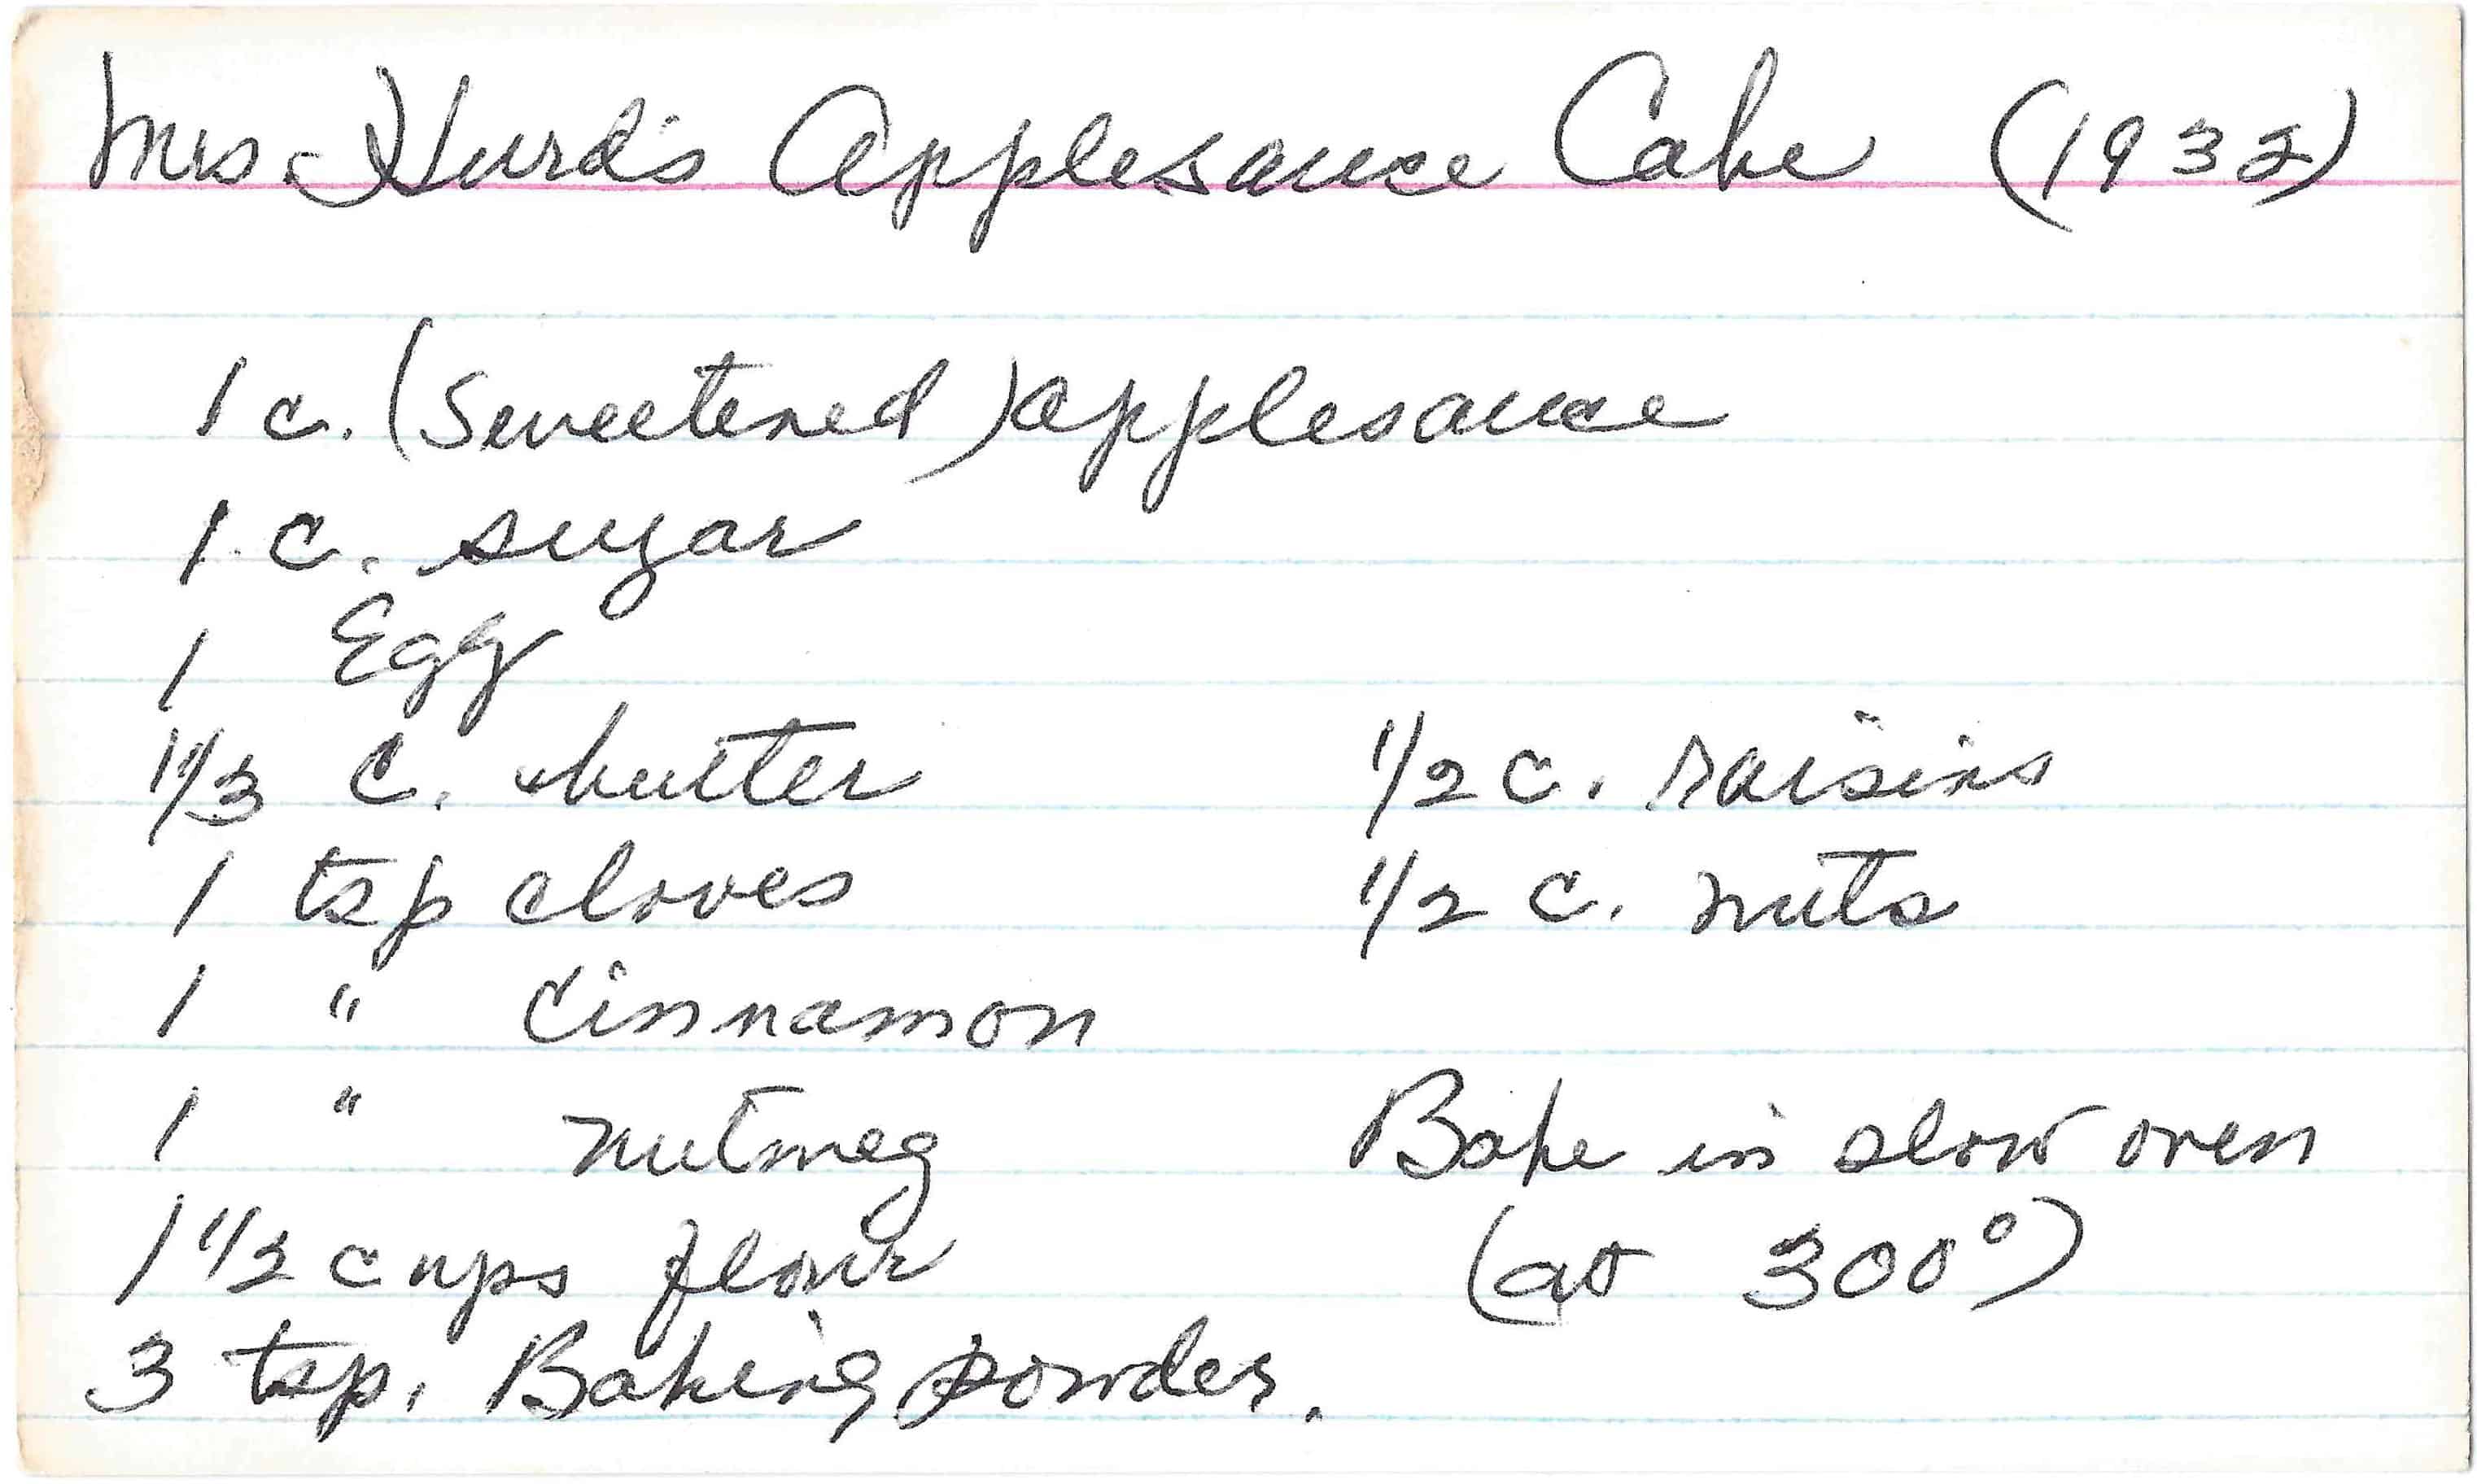 Mrs. Hurd's Applesauce Cake (1932)
1 c. (Sweetened) applesauce
1 c. sugar
1 Egg
1/3 c. butter
1 tsp cloves
1 " Cinnamon
1 " nutmeg
1 1/2 cups flour
3 tsp. Baking powder.
1/2 c. raisins
1/2 c. nuts
Bake in slow oven
(at 300°)